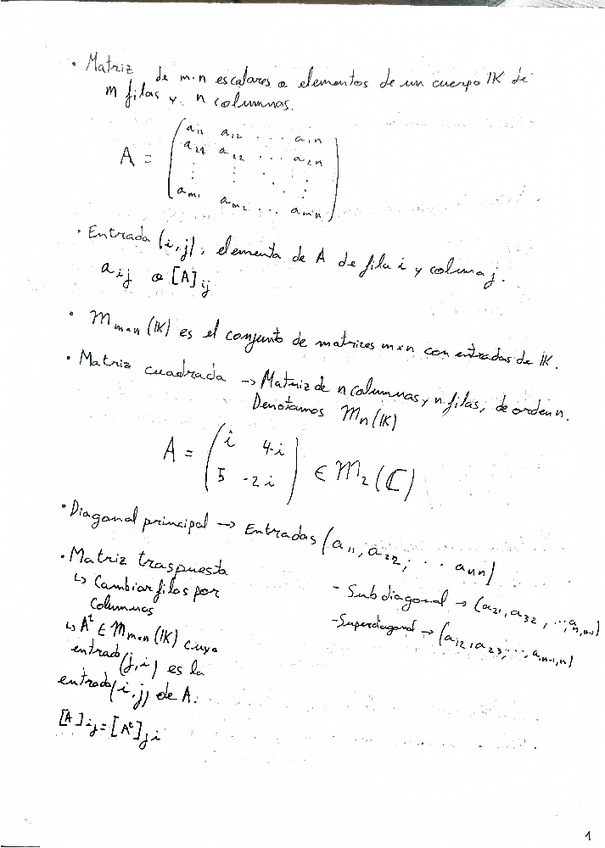 • Matriz de m·n escalares o elementos de un cuerpo IK de
m filas y n columnas.
A = ( a11 a12 ... a1n
a21 a22 ... a2n
⋮ ⋮ ⋱ ⋮
am1 am2 ... amn )
• Entrada (i,j), elemento de A de fila i y columna j.
aij o [A]ij
• Mm×n (IK) es el conjunto de matrices m×n con entradas de IK.
• Matriz cuadrada → Matriz de n columnas y n filas, de orden n.
Denotamos Mn(IK)
A = ( i 4-i
5 -2i ) ∈ M2(ℂ)
• Diagonal principal → Entradas (a11, a22, ... ann)
- Subdiagonal → (a21, a32, ..., an,n-1)
- Superdiagonal → (a12, a23, ..., an-1,n)
• Matriz traspuesta
↳ Cambiar filas por
columnas
↳ At ∈ Mm×n (IK) cuya
entrada (j,i) es la
entrada (i,j) de A.
[A]ij = [At]ji
1